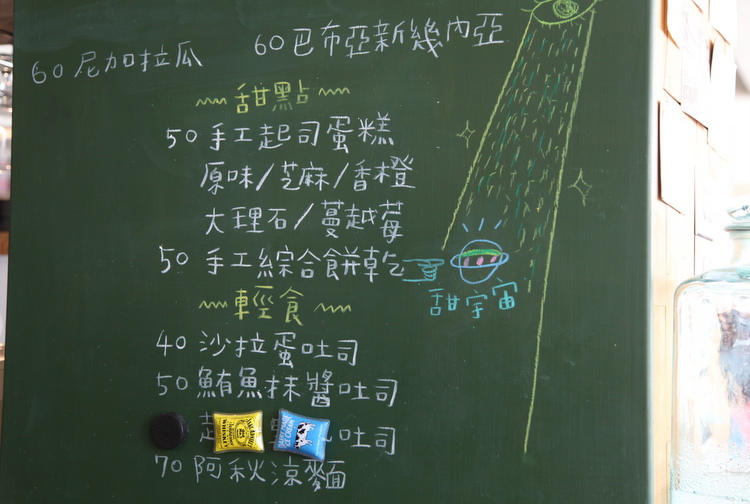 60 尼加拉瓜
60 巴布亞新幾內亞
甜點
50 手工起司蛋糕
原味/芝麻/香橙
大理石/蔓越莓
50 手工綜合餅乾
甜宇宙
輕食
40 沙拉蛋吐司
50 鮪魚抹醬吐司
吐司
70 阿秋涼麵